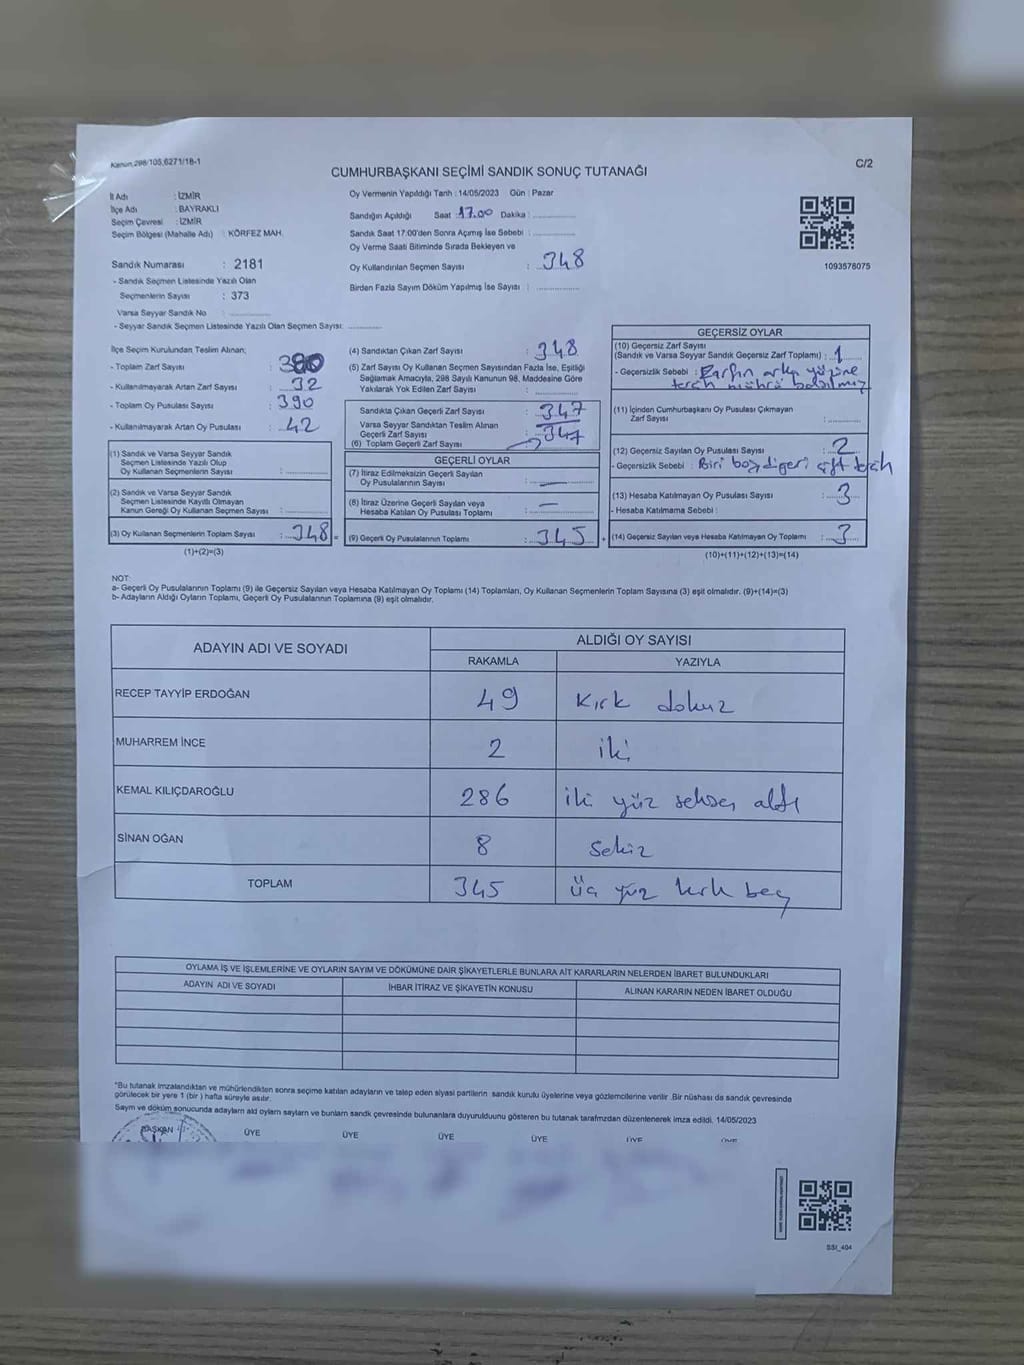 Kanun,298/105,6271/18-1
C/2
CUMHURBAŞKANI SEÇİMİ SANDIK SONUÇ TUTANAĞI
İl Adı : İZMİR
İlçe Adı : BAYRAKLI
Seçim Çevresi : İZMİR
Seçim Bölgesi (Mahalle Adı) : KÖRFEZ MAH.
Sandık Numarası : 2181
- Sandık Seçmen Listesinde Yazılı Olan
Seçmenlerin Sayısı : 373
Varsa Seyyar Sandık No :
- Seyyar Sandık Seçmen Listesinde Yazılı Olan Seçmen Sayısı:
Oy Vermenin Yapıldığı Tarih : 14/05/2023 Gün : Pazar
Sandığın Açıldığı Saat 17.00 Dakika :
Sandık Saat 17:00'den Sonra Açımış İse Sebebi :
Oy Verme Saati Bitiminde Sırada Bekleyen ve
Oy Kullandırılan Seçmen Sayısı : 348
Birden Fazla Sayım Döküm Yapılmış İse Sayısı :
1093578075
İlçe Seçim Kurulundan Teslim Alınan;
- Toplam Zarf Sayısı : 380
- Kullanılmayarak Artan Zarf Sayısı : 32
- Toplam Oy Pusulası Sayısı : 390
- Kullanılmayarak Artan Oy Pusulası : 42
(1) Sandık ve Varsa Seyyar Sandık
Seçmen Listesinde Yazılı Olup
Oy Kullanan Seçmenlerin Sayısı :
(2) Sandık ve Varsa Seyyar Sandık
Seçmen Listesinde Kayıtlı Olmayan
Kanun Gereği Oy Kullanan Seçmen Sayısı :
(3) Oy Kullanan Seçmenlerin Toplam Sayısı : 348 =
(1)+(2)=(3)
(4) Sandıktan Çıkan Zarf Sayısı : 348
(5) Zarf Sayısı Oy Kullanan Seçmen Sayısından Fazla İse, Eşitliği
Sağlamak Amacıyla, 298 Sayılı Kanunun 98. Maddesine Göre
Yakılarak Yok Edilen Zarf Sayısı :
Sandıkta Çıkan Geçerli Zarf Sayısı : 347
Varsa Seyyar Sandıktan Teslim Alınan
Geçerli Zarf Sayısı : 347
(6) Toplam Geçerli Zarf Sayısı
GEÇERLİ OYLAR
(7) İtiraz Edilmeksizin Geçerli Sayılan
Oy Pusulalarının Sayısı : —
(8) İtiraz Üzerine Geçerli Sayılan veya
Hesaba Katılan Oy Pusulası Toplamı : —
(9) Geçerli Oy Pusulalarının Toplamı : 345 +
GEÇERSİZ OYLAR
(10) Geçersiz Zarf Sayısı
(Sandık ve Varsa Seyyar Sandık Geçersiz Zarf Toplamı) : 1
- Geçersizlik Sebebi : Zarfın arka yüzüne
tercih mührü basılmış
(11) İçinden Cumhurbaşkanı Oy Pusulası Çıkmayan
Zarf Sayısı :
(12) Geçersiz Sayılan Oy Pusulası Sayısı : 2
- Geçersizlik Sebebi : Biri boş diğeri çift tercih
(13) Hesaba Katılmayan Oy Pusulası Sayısı : 3
- Hesaba Katılmama Sebebi :
(14) Geçersiz Sayılan veya Hesaba Katılmayan Oy Toplamı : 3
(10)+(11)+(12)+(13)=(14)
NOT:
a- Geçerli Oy Pusulalarının Toplamı (9) ile Geçersiz Sayılan veya Hesaba Katılmayan Oy Toplamı (14) Toplamları, Oy Kullanan Seçmenlerin Toplam Sayısına (3) eşit olmalıdır. (9)+(14)=(3)
b- Adayların Aldığı Oyların Toplamı, Geçerli Oy Pusulalarının Toplamına (9) eşit olmalıdır.
ADAYIN ADI VE SOYADI
ALDIĞI OY SAYISI
RAKAMLA YAZIYLA
RECEP TAYYİP ERDOĞAN 49 Kırk dokuz
MUHARREM İNCE 2 iki
KEMAL KILIÇDAROĞLU 286 iki yüz seksen altı
SİNAN OĞAN 8 Sekiz
TOPLAM 345 üç yüz kırk beş
OYLAMA İŞ VE İŞLEMLERİNE VE OYLARIN SAYIM VE DÖKÜMÜNE DAİR ŞİKAYETLERLE BUNLARA AİT KARARLARIN NELERDEN İBARET BULUNDUKLARI
ADAYIN ADI VE SOYADI İHBAR İTİRAZ VE ŞİKAYETİN KONUSU ALINAN KARARIN NEDEN İBARET OLDUĞU
"Bu tutanak imzalandıktan ve mühürlendikten sonra seçime katılan adayların ve talep eden siyasi partilerin sandık kurulu üyelerine veya gözlemcilerine verilir. Bir nüshası da sandık çevresinde
görülecek bir yere 1 (bir) hafta süreyle asılır.
Sayım ve döküm sonucunda adayların ald oyların sayların ve bunların sandık çevresinde bulunanlara duyurulduunu gösteren bu tutanak tarafmzdan düzenlenerek imza edildi. 14/05/2023
BAŞKAN ÜYE ÜYE ÜYE ÜYE ÜYE ÜYE
SSI_404